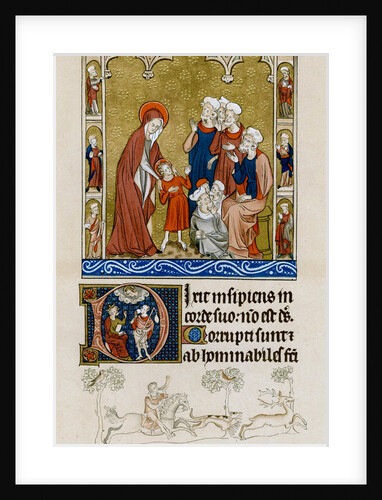 Dixit insipiens in
corde suo: nō est dš.
Corrupti sunt ⁊
abhominabiles